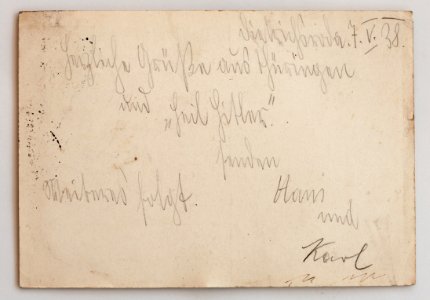 Dietrichsroda, 7.V.38.
Herzliche Grüße aus Thüringen
und „Heil Hitler".
senden
Weiteres folgt. Hans
und
Karl